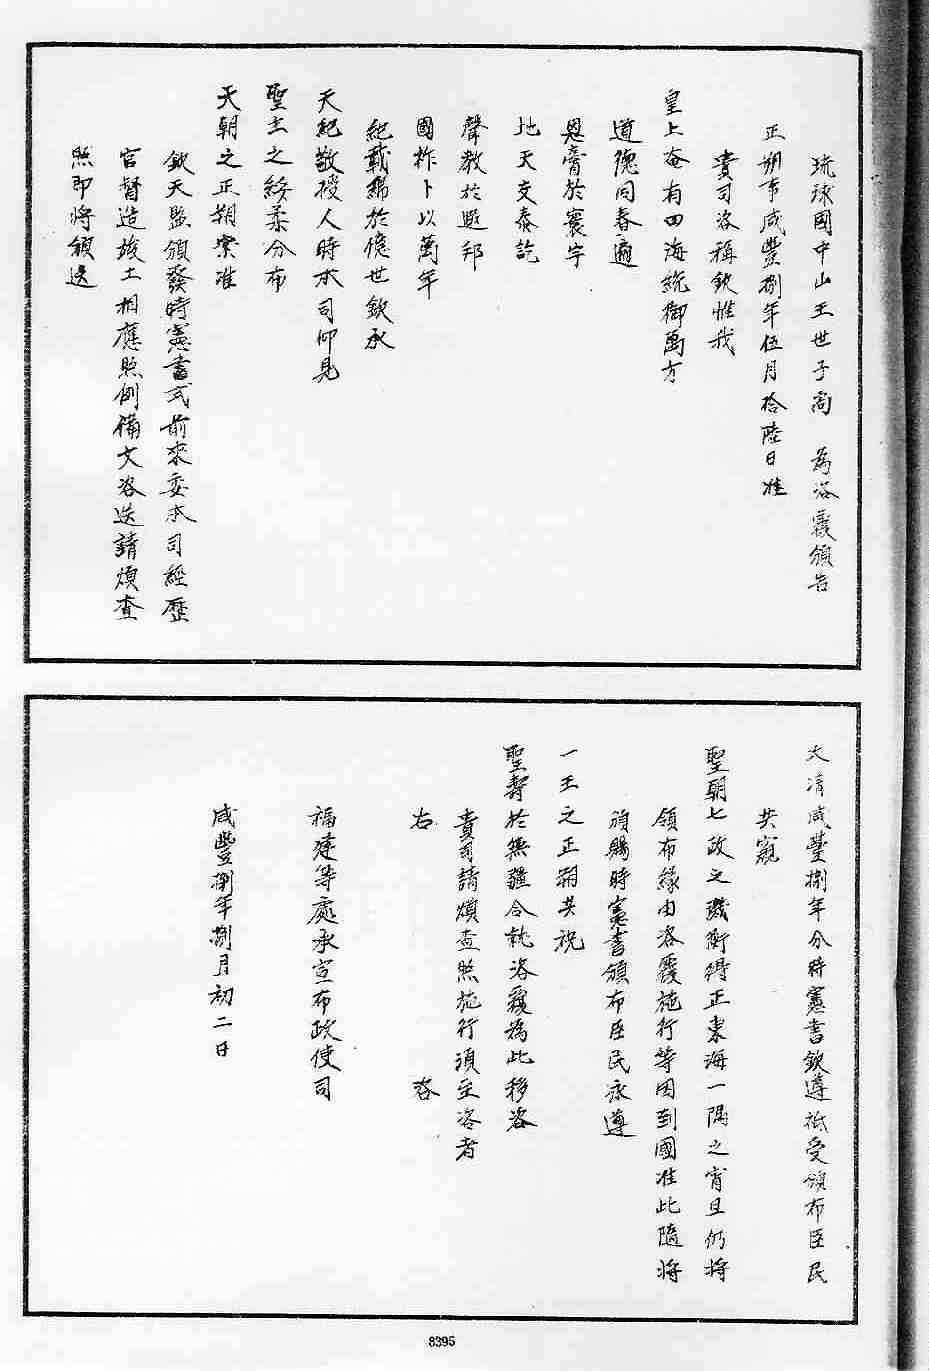 琉球國中山王世子尚　為咨覆頒告
正朔事咸豐捌年伍月拾陸日准
貴司咨稱欽惟我
皇上奄有四海統御萬方
道德同春遍
恩膏於寰宇
地天交泰訖
聲教於遐邦
國祚卜以萬年
紀載綿於億世欽承
天紀敬授人時本司仰見
聖主之綏柔分布
天朝之正朔案准
欽天監頒發時憲書式前來委本司經歷
官督造竣工相應照例備文咨送請煩查
照即將頒送
大清咸豐捌年分時憲書欽遵祗受頒布臣民
共窺
聖朝七政之璣衡得正東海一隅之宵旦仍將
領布緣由咨覆施行等因到國准此隨將
頒賜時憲書頒布臣民永遵
一王之正朔共祝
聖壽於無疆合就咨覆為此移咨
貴司請煩查照施行須至咨者
右　咨
福建等處承宣布政使司
咸豐捌年捌月初二日
8395